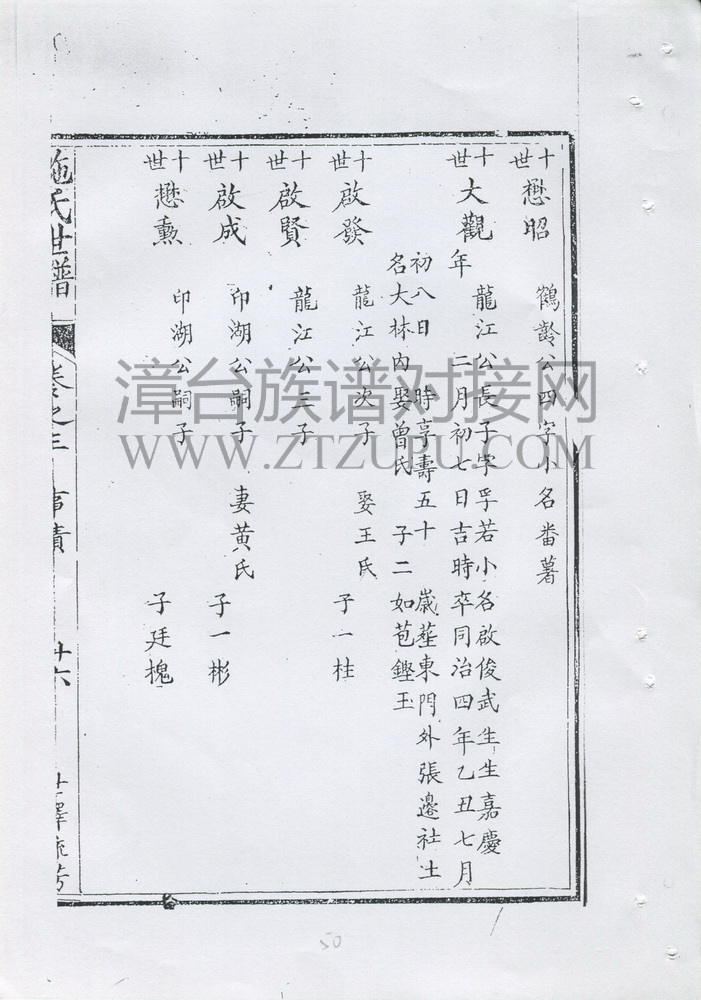 十世 懋昭 鶴齡公四字小名番薯
十世 大觀 龍江公長子字孚若小名啟俊武生生嘉慶
年 二月初七日吉時卒同治四年乙丑七月
初八日 時享壽五十 歲葬東門外張邊社土
名大林內娶曾氏 子二如苞鏗玉
十世 啟發 龍江公次子 娶王氏 子一柱
十世 啟賢 龍江公三子
十世 啟成 印湖公嗣子 妻黃氏 子一彬
十世 懋勳 印湖公嗣子 子廷槐
施氏世譜 卷之三 事蹟 廿六
漳台族谱对接网
WWW.ZTZUPU.COM
50